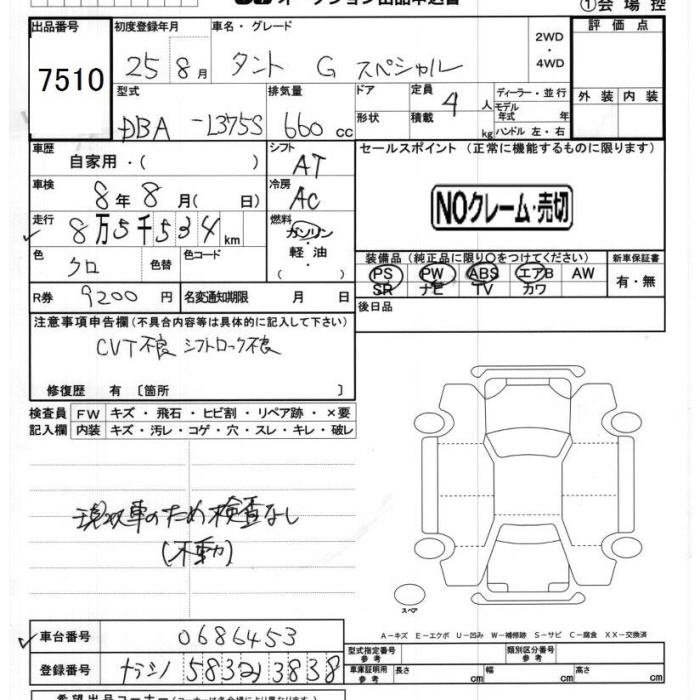 オークション出品申込書
①会場控
出品番号 初度登録年月 車名・グレード 2WD・4WD 評価点
7510 25 8月 タント G スペシャル 外装 内装
型式 排気量 ドア 定員 4人 ディーラー・並行
DBA-L375S 660cc 形状 積載 kg モデル年式 年 ハンドル 左・右
車歴 自家用・( ) シフト AT セールスポイント (正常に機能するものに限ります)
車検 8年8月( 日) 冷房 AC
NOクレーム・売切
走行 8万5千534km 燃料 ガソリン・軽油・( )
色 クロ 色替 色コード
装備品(純正品に限り○をつけてください) 新車保証書
PS PW ABS エアB AW 有・無
SR ナビ TV カワ
R券 9200円 名変通知期限 月 日 後日品
注意事項申告欄(不具合内容等は具体的に記入して下さい)
CVT不良 シフトロック不良
修復歴 有〔箇所 〕
検査員 FW キズ・飛石・ヒビ割・リペア跡・×要
記入欄 内装 キズ・汚レ・コゲ・穴・スレ・キレ・破レ
現状車のため検査なし
(不動)
スペア
A-キズ E-エクボ U-凹み W-補修跡 S-サビ C-腐食 XX-交換済
車台番号 0686453 型式指定番号 参考 類別区分番号 参考
登録番号 ナラシノ 583 3838 車庫証明用 参考 長さ cm 幅 cm 高さ cm
希望出品コーナー